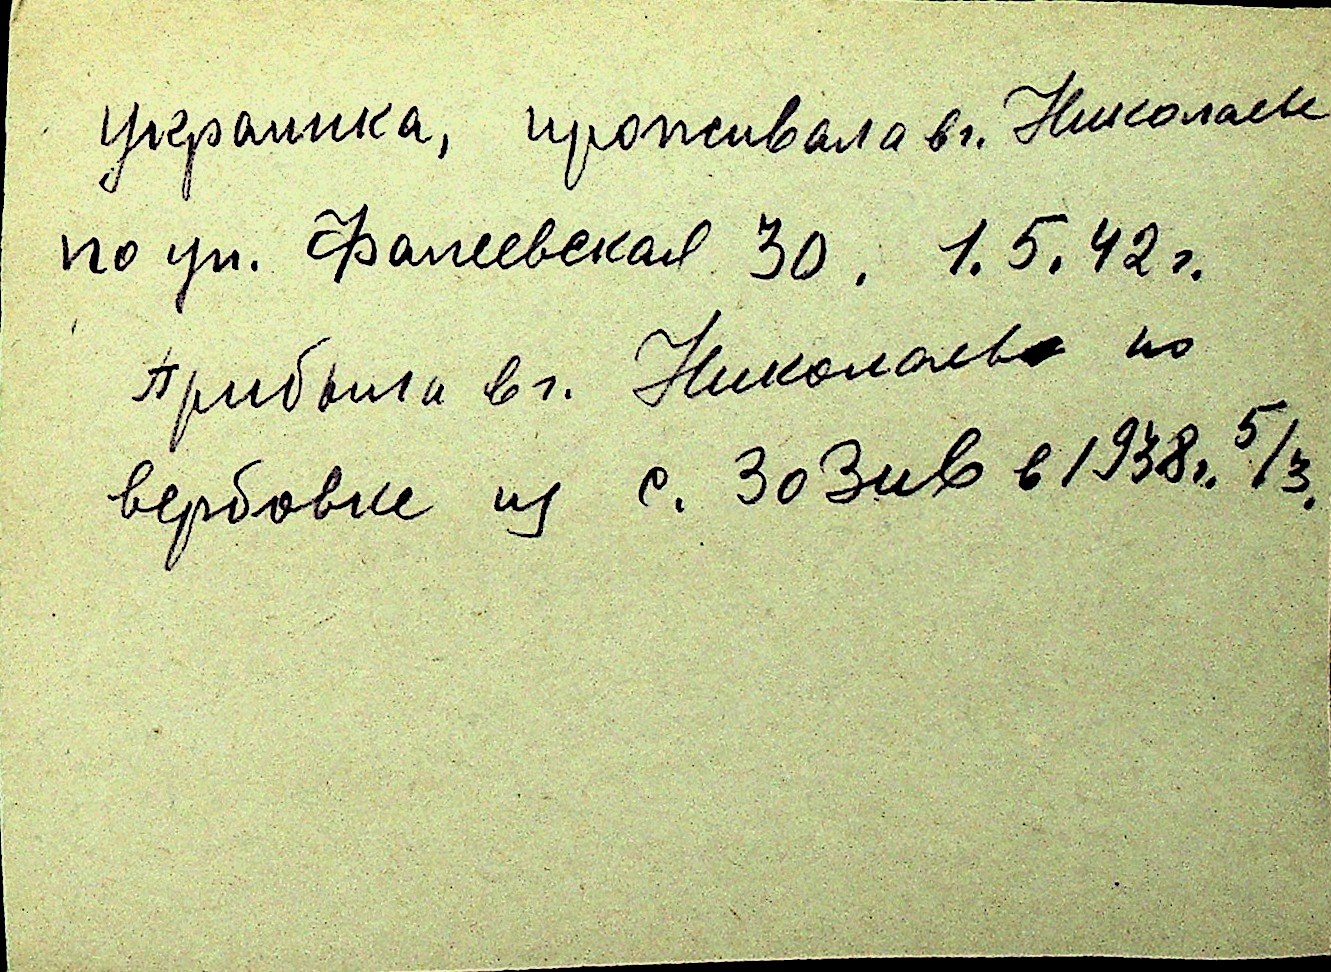 украинка, проживала в г. Николаеве
по ул. Фалеевская 30. 1.5.42 г.
Прибыла в г. Николаев по
вербовке из с. Зозив в 1938 г. 5/3.